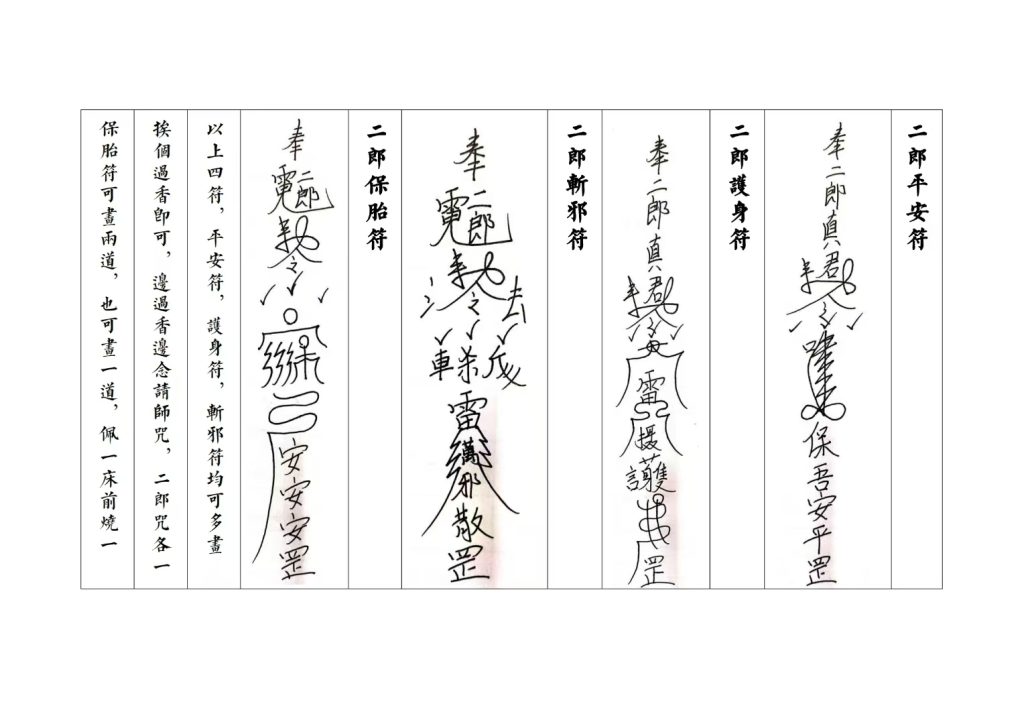 二郎平安符
奉二郎真君敕令保吾安平罡
二郎護身符
奉二郎真君敕令雷摄護罡
二郎斬邪符
奉二郎敕令雷萬邪散罡
二郎保胎符
奉二郎敕令安安安罡
以上四符，平安符，護身符，斬邪符均可多畫
挨個過香即可，邊過香邊念請師咒，二郎咒各一
保胎符可畫兩道，也可畫一道，佩一床前燒一